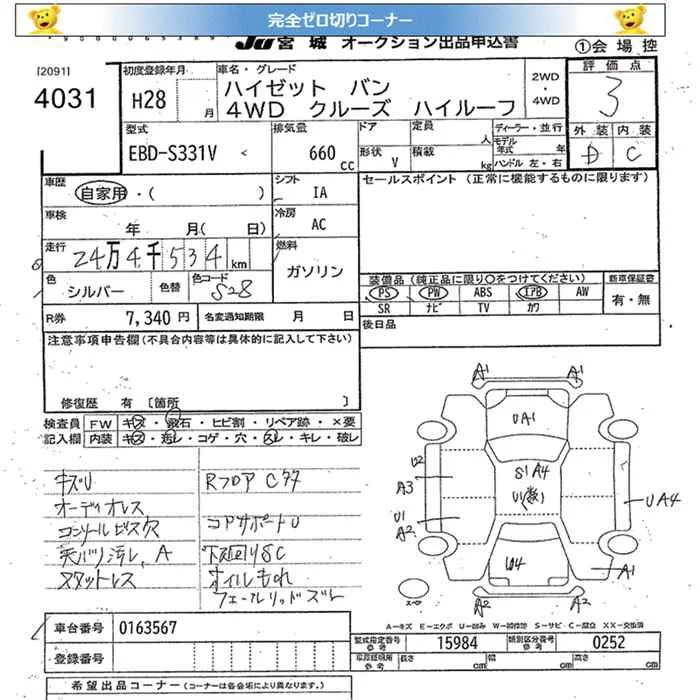 完全ゼロ切りコーナー
JU宮城 オークション出品申込書 ①会場控
[2091]
4031
初度登録年月
H28 月
車名・グレード
ハイゼット バン
4WD クルーズ ハイルーフ
2WD
・
4WD
評価点
3
外装 内装
D C
型式
EBD-S331V
排気量
660 cc
ドア
形状 V
定員 人
積載 kg
ディーラー・並行
モデル年式 年
ハンドル 左・右
車歴
自家用・( )
シフト
IA
セールスポイント (正常に機能するものに限ります)
車検
年 月( 日)
冷房
AC
走行
24万4千534km
燃料
ガソリン
色
シルバー
色替
色コード
S28
装備品 (純正品に限り○をつけてください)
PS PW ABS エアB AW
SR ナビ TV カワ
新車保証書
有・無
R券 7,340円
名変通知期限 月 日
後日品
注意事項申告欄(不具合内容等は具体的に記入して下さい)
修復歴 有 〔箇所 〕
検査員記入欄
FW キズ・飛石・ヒビ割・リペア跡・×要
内装 キズ・汚レ・コゲ・穴・スレ・キレ・破レ
キズU
オーディオレス
コンソールビス欠
天バリ汚レ、A
スタットレス
Rフロア C
コアサポートU
下廻りSC
オイルもれ
フューエルリッドズレ
A1 A1
UA1
U2
A3
S1 A4
U1
A2
UA4
U4
A1
A2 A2
A－キズ E－エクボ U－凹み W－補修跡 S－サビ C－腐立 XX－交換済
車台番号 0163567
登録番号
型式指定番号 参考 15984
類別区分番号 参考 0252
車庫証明用 参考 長さ cm 幅 cm 高さ cm
希望出品コーナー (コーナーは各会場により異なります。)